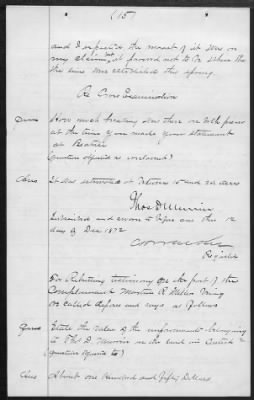 (15)
and I expected the most of it was on
my claim,
the line was established this spring.
Re Cross Examination
Ques How much breaking was there on
at the time you made your statement
at Beatrice
(question objected to irrelevant)
Ans It was estimated at between 15 and 20 acres
Thos D Murrin
Examined and sworn to before me this 12
day of Dec 1872
Register
For Rebutting testimony on the part of the
Complainant Morton R Miller being
re called deposes and says as follows
Ques State the value of the improvements belonging
to Thos D Murrin on the land in Contest
(question objected to)
Ans About one hundred and fifty Dollars